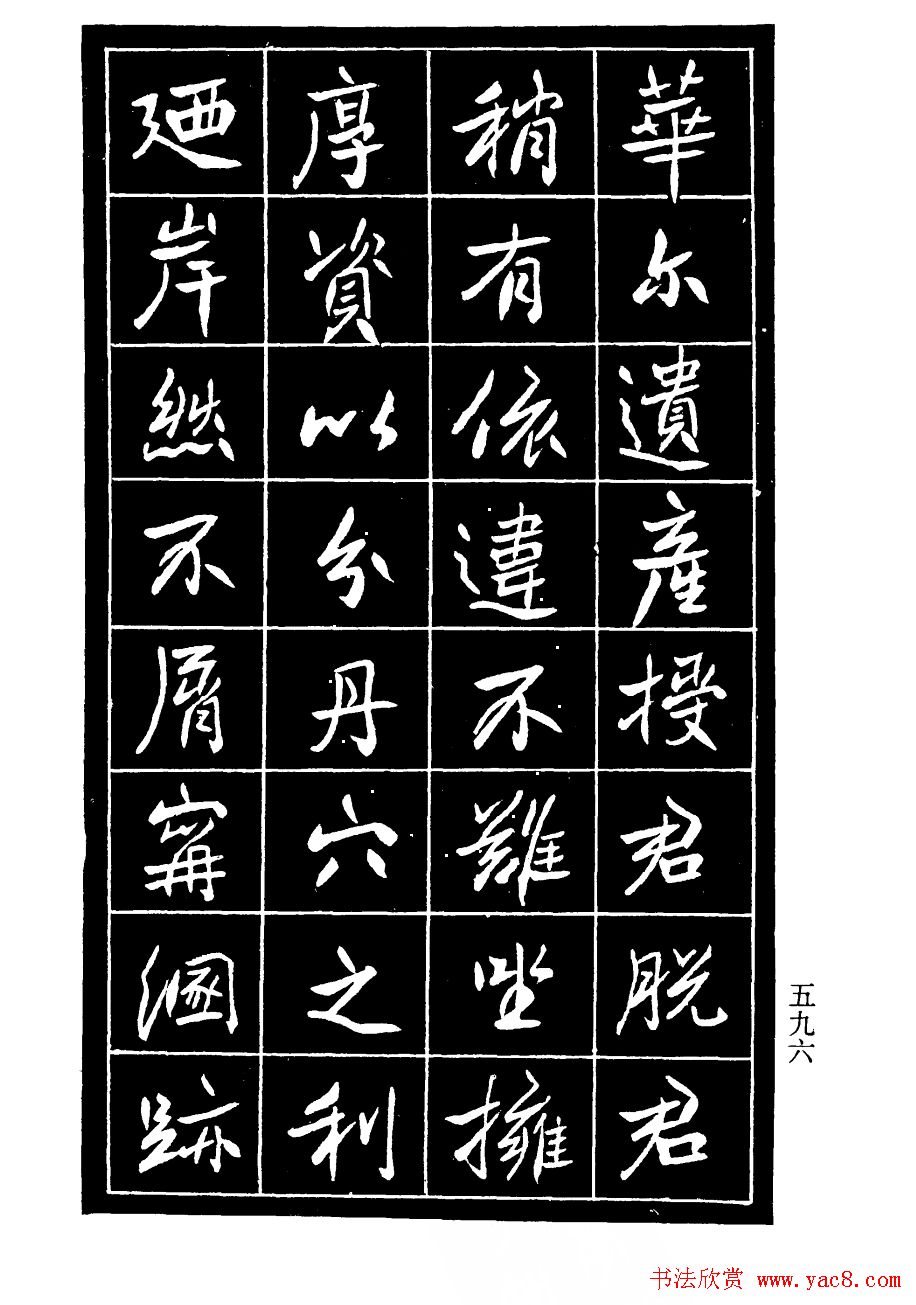 華尔遺產授君脫君
稍有依違不難坐擁
厚資以分丹穴之利
廼岸然不屑寗溷跡
五九六
书法欣赏 www.yac8.com